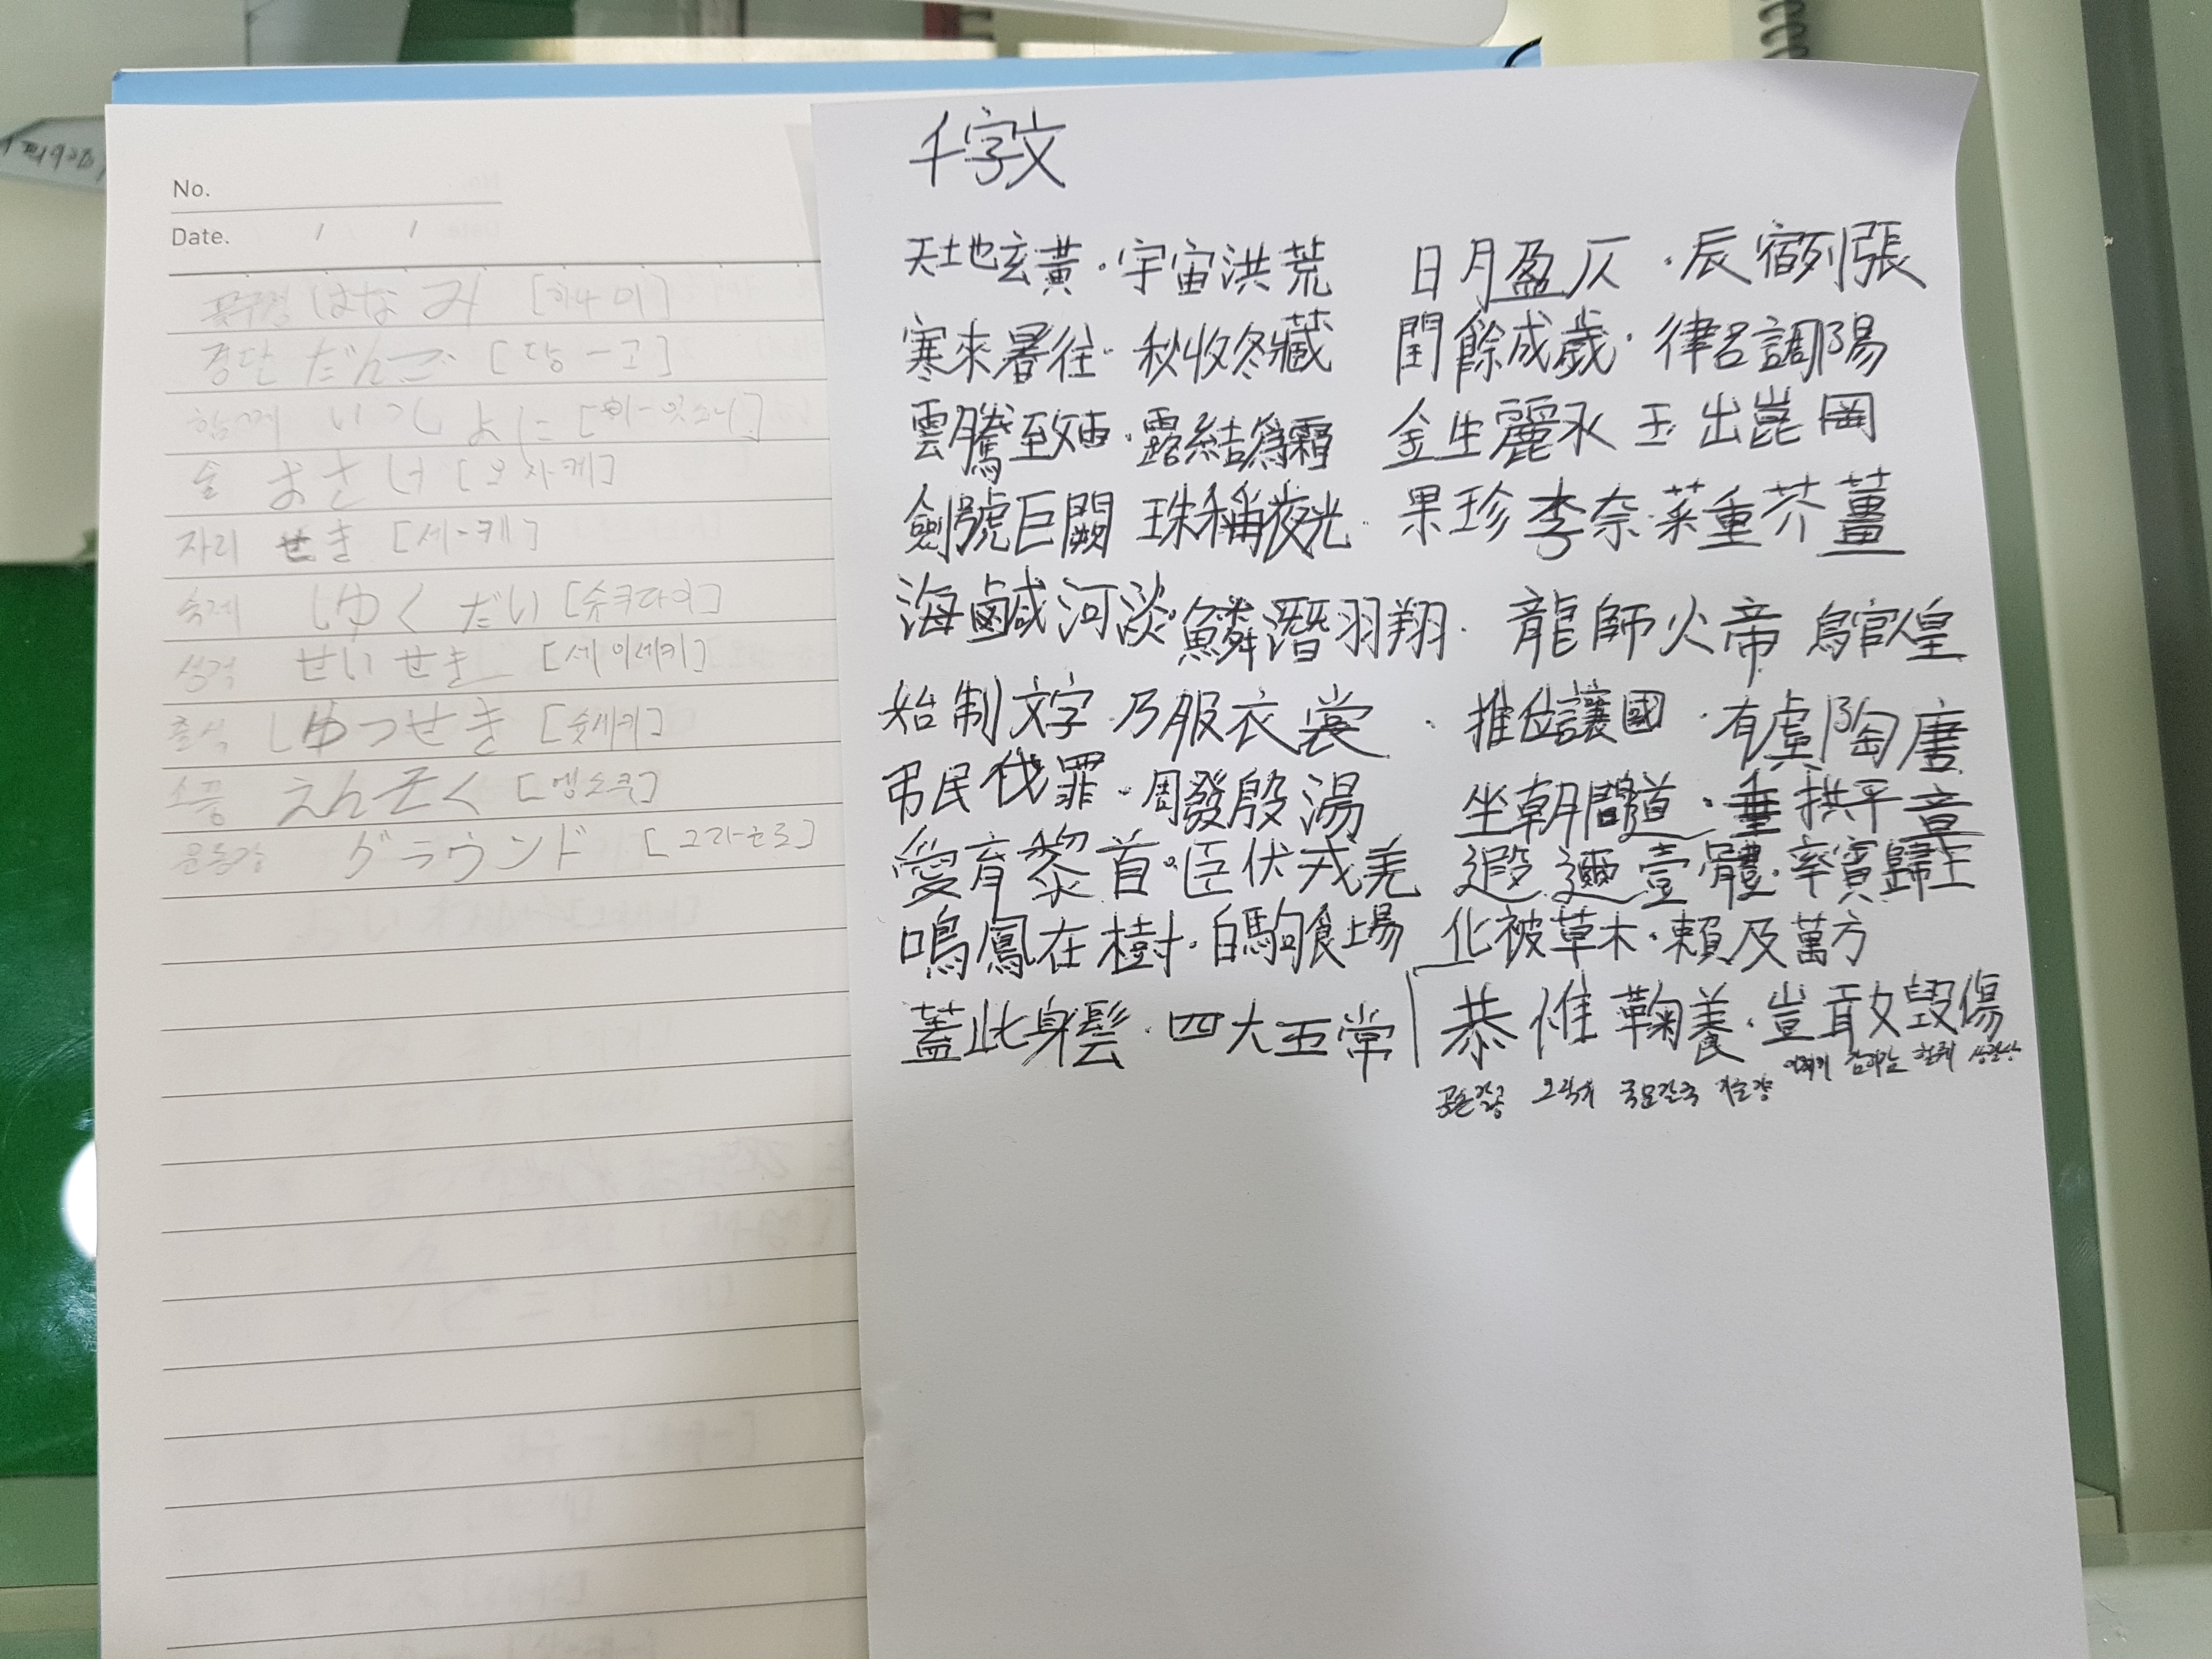 No.
Date. / /
꽃구경 はなみ [하나미]
경단 だんご [당-고]
함께 いっしょに
술 おさけ [오사케]
자리 せき [세-케]
숙제 しゅくだい [슈쿠다이]
성적 せいせき [세이세키]
출석 しゅつせき [슛세키]
소풍 えんそく [엥소쿠]
운동장 グラウンド
千字文
天地玄黃·宇宙洪荒 日月盈仄·辰宿列張
寒來暑往·秋收冬藏 閏餘成歲·律呂調陽
雲騰致雨·露結爲霜 金生麗水 玉出崑岡
劍號巨闕 珠稱夜光· 果珍李奈·菜重芥薑
海鹹河淡·鱗潛羽翔· 龍師火帝 鳥官人皇
始制文字·乃服衣裳· 推位讓國·有虞陶唐
弔民伐罪·周發殷湯 坐朝問道·垂拱平章
愛育黎首·臣伏戎羌 遐邇壹體·率賓歸王
鳴鳳在樹·白駒食場 化被草木·賴及萬方
蓋此身髮·四大五常 恭惟鞠養·豈敢毁傷
공손할공 오직유 국문할국 기를양 어찌기 감히감 헐훼 상할상